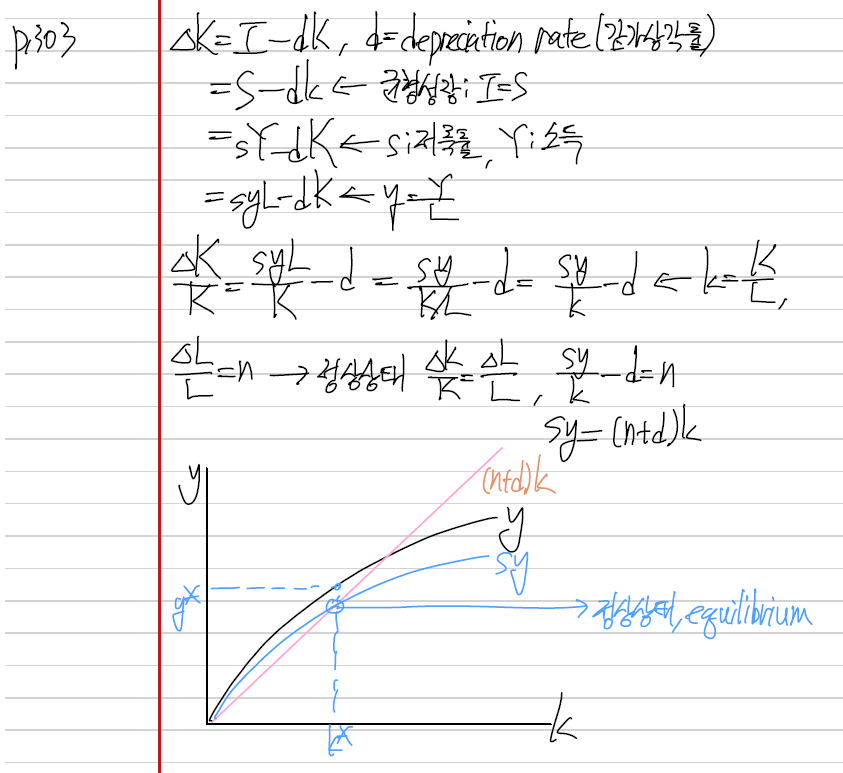 p.303
ΔK = I - dK, d = depreciation rate (감가상각률)
= S - dk ← 균형성장; I = S
= sY - dK ← s; 저축률, Y; 소득
= syL - dK ← y = Y/L
ΔK/K = syL/K - d = sy/(K/L) - d = sy/k - d ← k = K/L,
ΔL/L = n → 정상상태 ΔK/K = ΔL/L, sy/k - d = n
sy = (n+d)k
y
(n+d)k
y
sy
y*
정상상태, equilibrium
k
k*